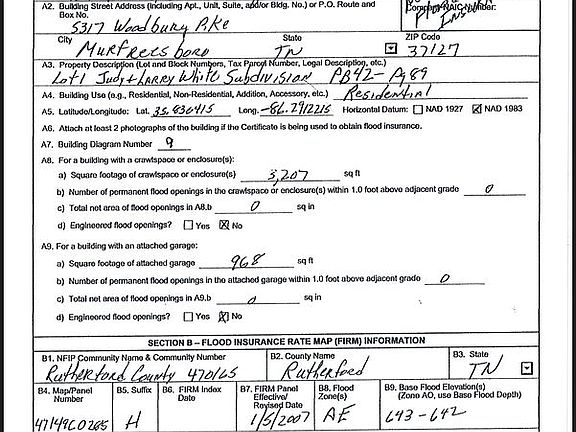 A2. Building Street Address (including Apt., Unit, Suite, and/or Bldg. No.) or P.O. Route and
Box No.
5317 Woodbury Pike
City State ZIP Code
Murfreesboro TN 37127
A3. Property Description (Lot and Block Numbers, Tax Parcel Number, Legal Description, etc.)
Lot 1 Judy & Larry White Subdivision PB42-Pg 89
A4. Building Use (e.g., Residential, Non-Residential, Addition, Accessory, etc.) Residential
A5. Latitude/Longitude: Lat. 35.836415 Long. -86.2912215 Horizontal Datum: NAD 1927 NAD 1983
A6. Attach at least 2 photographs of the building if the Certificate is being used to obtain flood insurance.
A7. Building Diagram Number 9
A8. For a building with a crawlspace or enclosure(s):
a) Square footage of crawlspace or enclosure(s) 3,207 sq ft
b) Number of permanent flood openings in the crawlspace or enclosure(s) within 1.0 foot above adjacent grade 0
c) Total net area of flood openings in A8.b 0 sq in
d) Engineered flood openings? Yes No
A9. For a building with an attached garage:
a) Square footage of attached garage 968 sq ft
b) Number of permanent flood openings in the attached garage within 1.0 foot above adjacent grade 0
c) Total net area of flood openings in A9.b 0 sq in
d) Engineered flood openings? Yes No
SECTION B – FLOOD INSURANCE RATE MAP (FIRM) INFORMATION
B1. NFIP Community Name & Community Number B2. County Name B3. State
Rutherford County 470165 Rutherford TN
B4. Map/Panel Number B5. Suffix B6. FIRM Index Date B7. FIRM Panel Effective/ Revised Date B8. Flood Zone(s) B9. Base Flood Elevation(s) (Zone AO, use Base Flood Depth)
47149C0285 H 1/5/2007 AE 643-642